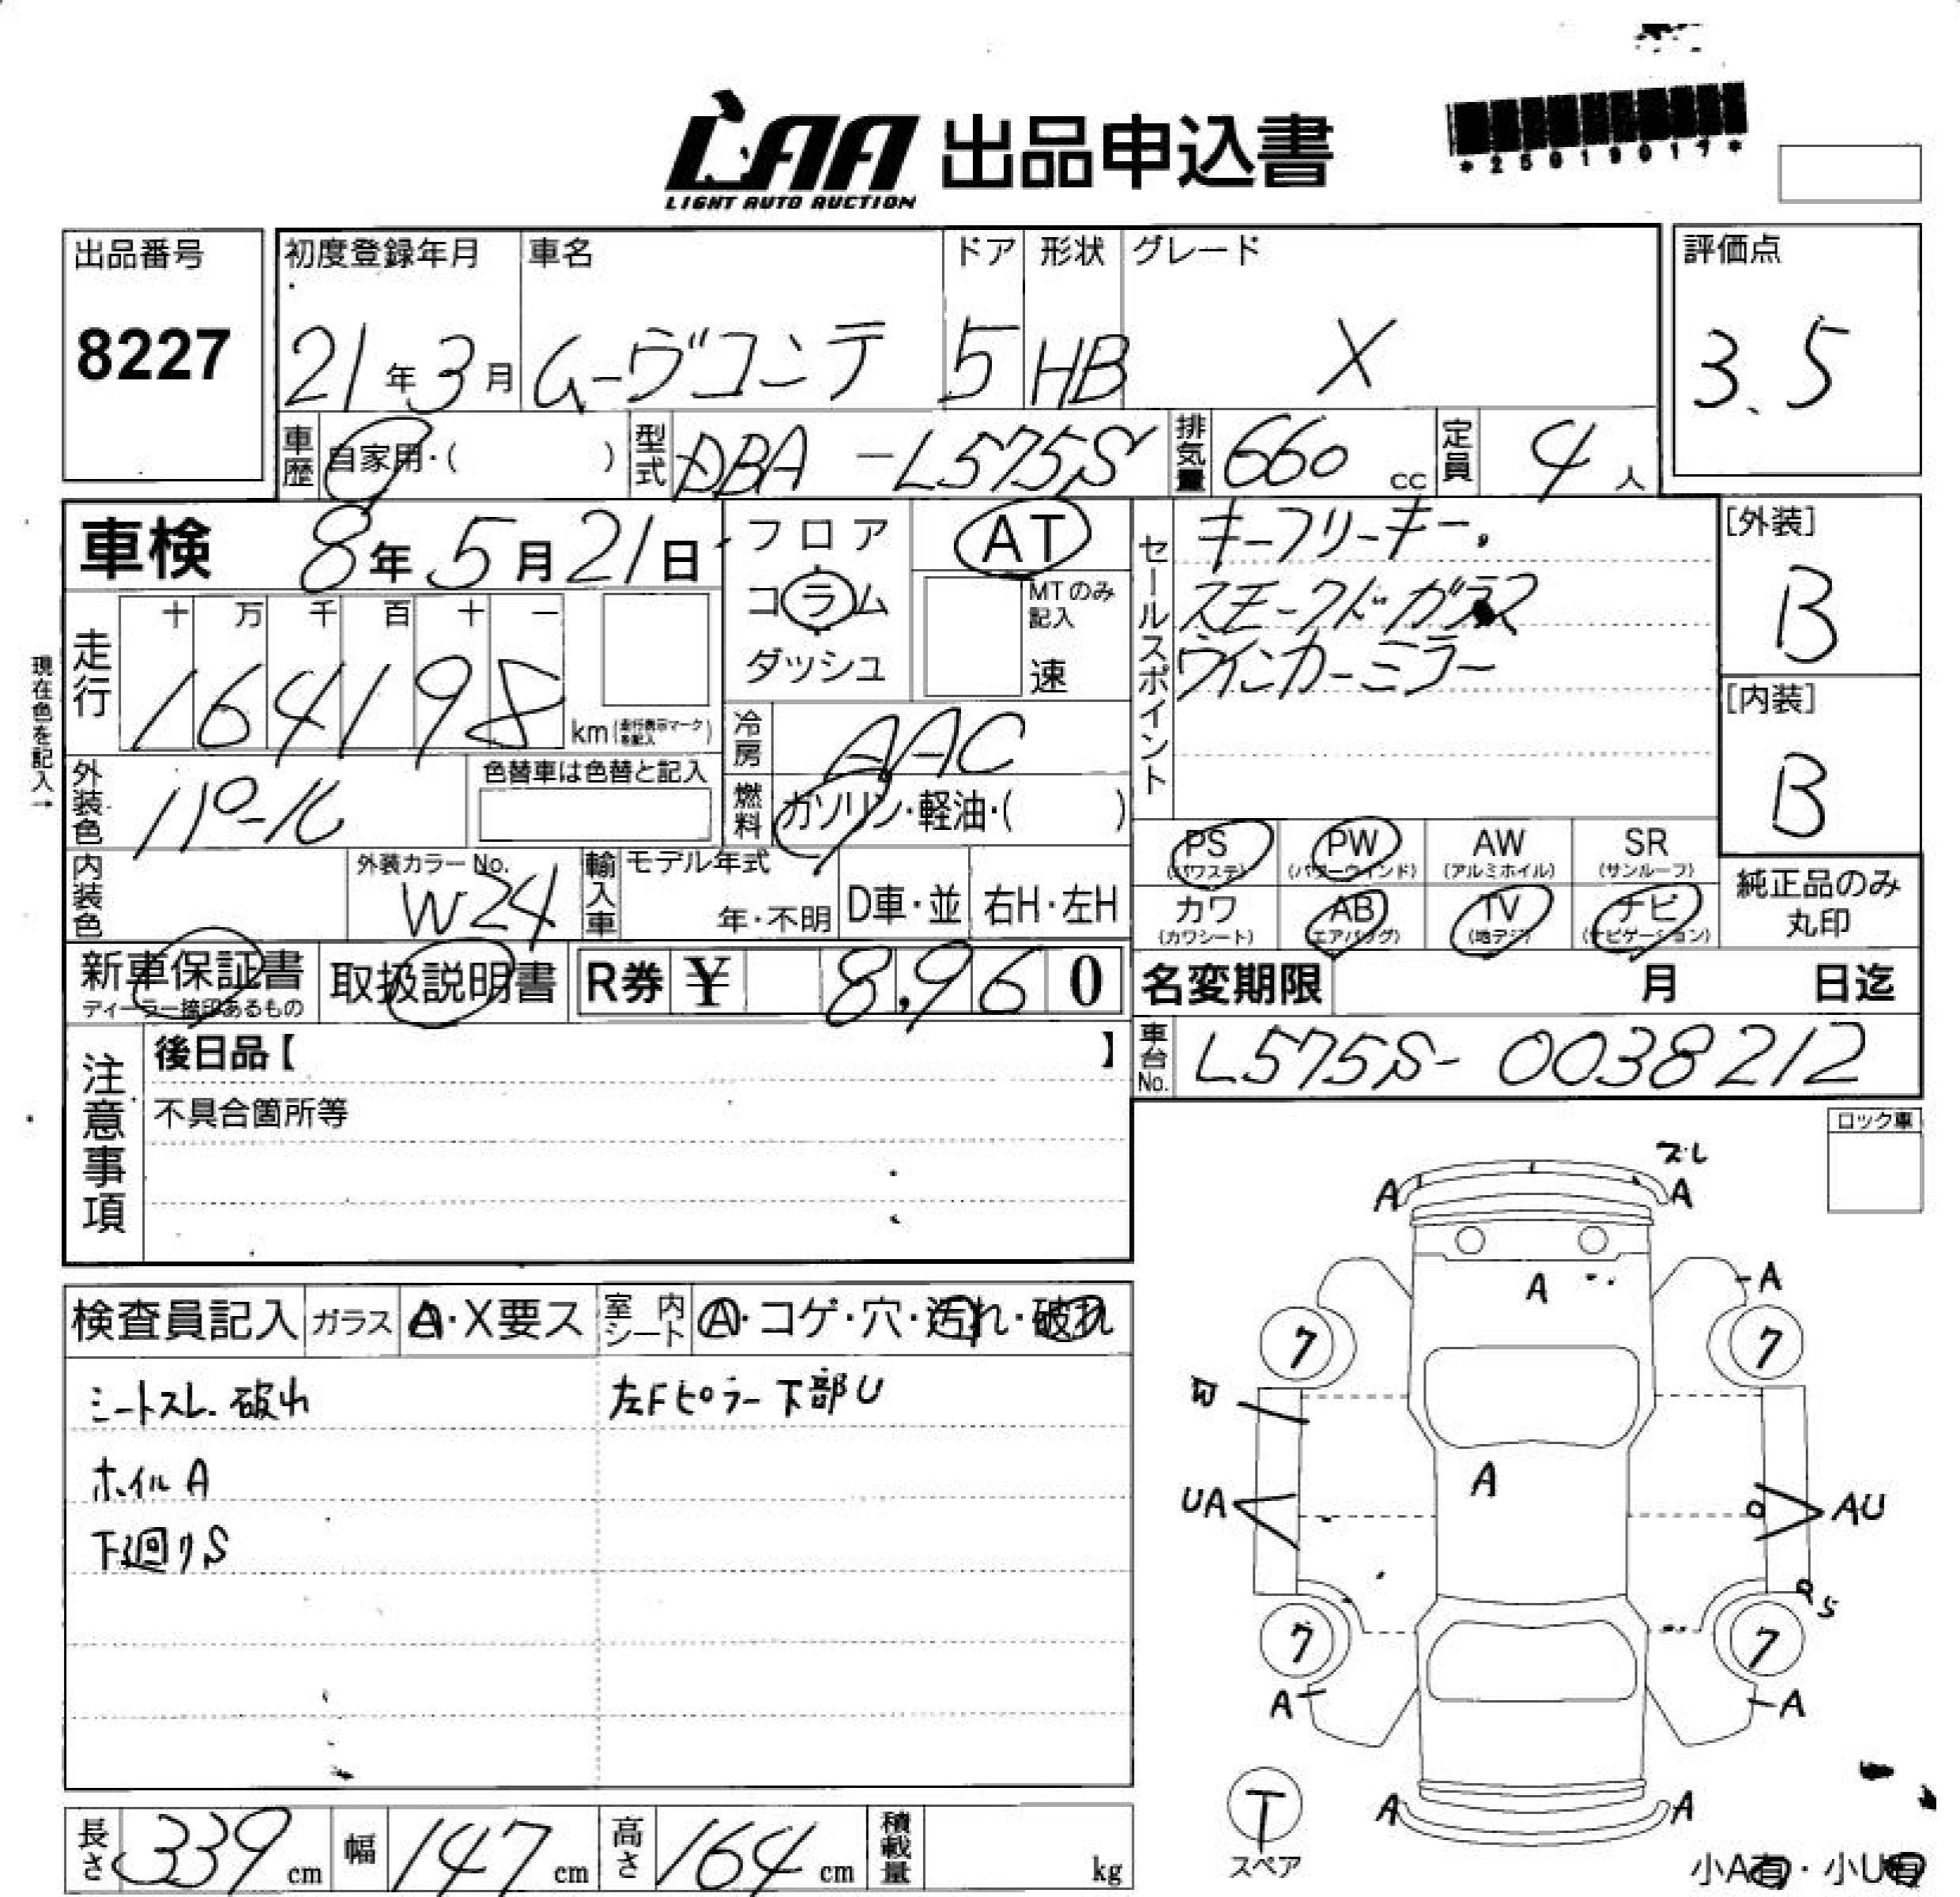 LAA 出品申込書
LIGHT AUTO AUCTION
*25019017*
出品番号 初度登録年月 車名 ドア 形状 グレード 評価点
8227 21年3月 ムーヴコンテ 5 HB X 3.5
車歴 自家用・( ) 型式 DBA-L575S 排気量 660 cc 定員 4人
車検 8年5月21日
フロア
コラム
ダッシュ
AT
MTのみ記入
速
セールスポイント
キーフリーキー.
スモークドガラス
ウインカーミラー
[外装]
B
[内装]
B
現在色を記入→
走行 十 万 千 百 十 一
164198 km (走行表示マークを記入)
冷房 AAC
燃料 ガソリン・軽油・( )
外装色 パール 色替車は色替と記入
内装色 外装カラーNo. W24
輸入車 モデル年式 年・不明 D車・並 右H・左H
PS (パワステ) PW (パワーウインド) AW (アルミホイル) SR (サンルーフ)
カワ (カワシート) AB (エアバッグ) TV (地デジ) ナビ (ナビゲーション)
純正品のみ丸印
新車保証書 ディーラー捺印あるもの 取扱説明書 R券 ¥ 8,960
名変期限 月 日迄
車台No. L575S-0038212
注意事項
後日品【 】
不具合箇所等
ロック車
検査員記入 ガラス A・X要ス 室内シート A・コゲ・穴・汚れ・破れ
シートスレ.破れ 左Fピラー下部U
ホイルA
下廻りS
ズレ
A A
A A
7 7
A
UA AU
S
7 7
A A
T
スペア
A A
小A有・小U有
長さ 339 cm 幅 147 cm 高さ 164 cm 積載量 kg